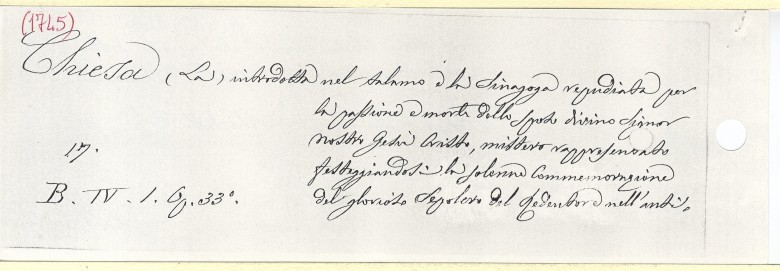 (1745)
Chiesa (La) introdotta nel talamo e la Sinagoga repudiata per
la passione e morte dello Sposo divino Signor
nostro Gesù Cristo, mistero rappresentato
festeggiandosi la solenne Commemorazione
del glorioso Sepolcro del Redentore nell'anti-
17.
B. IV. 1. Op. 33°.